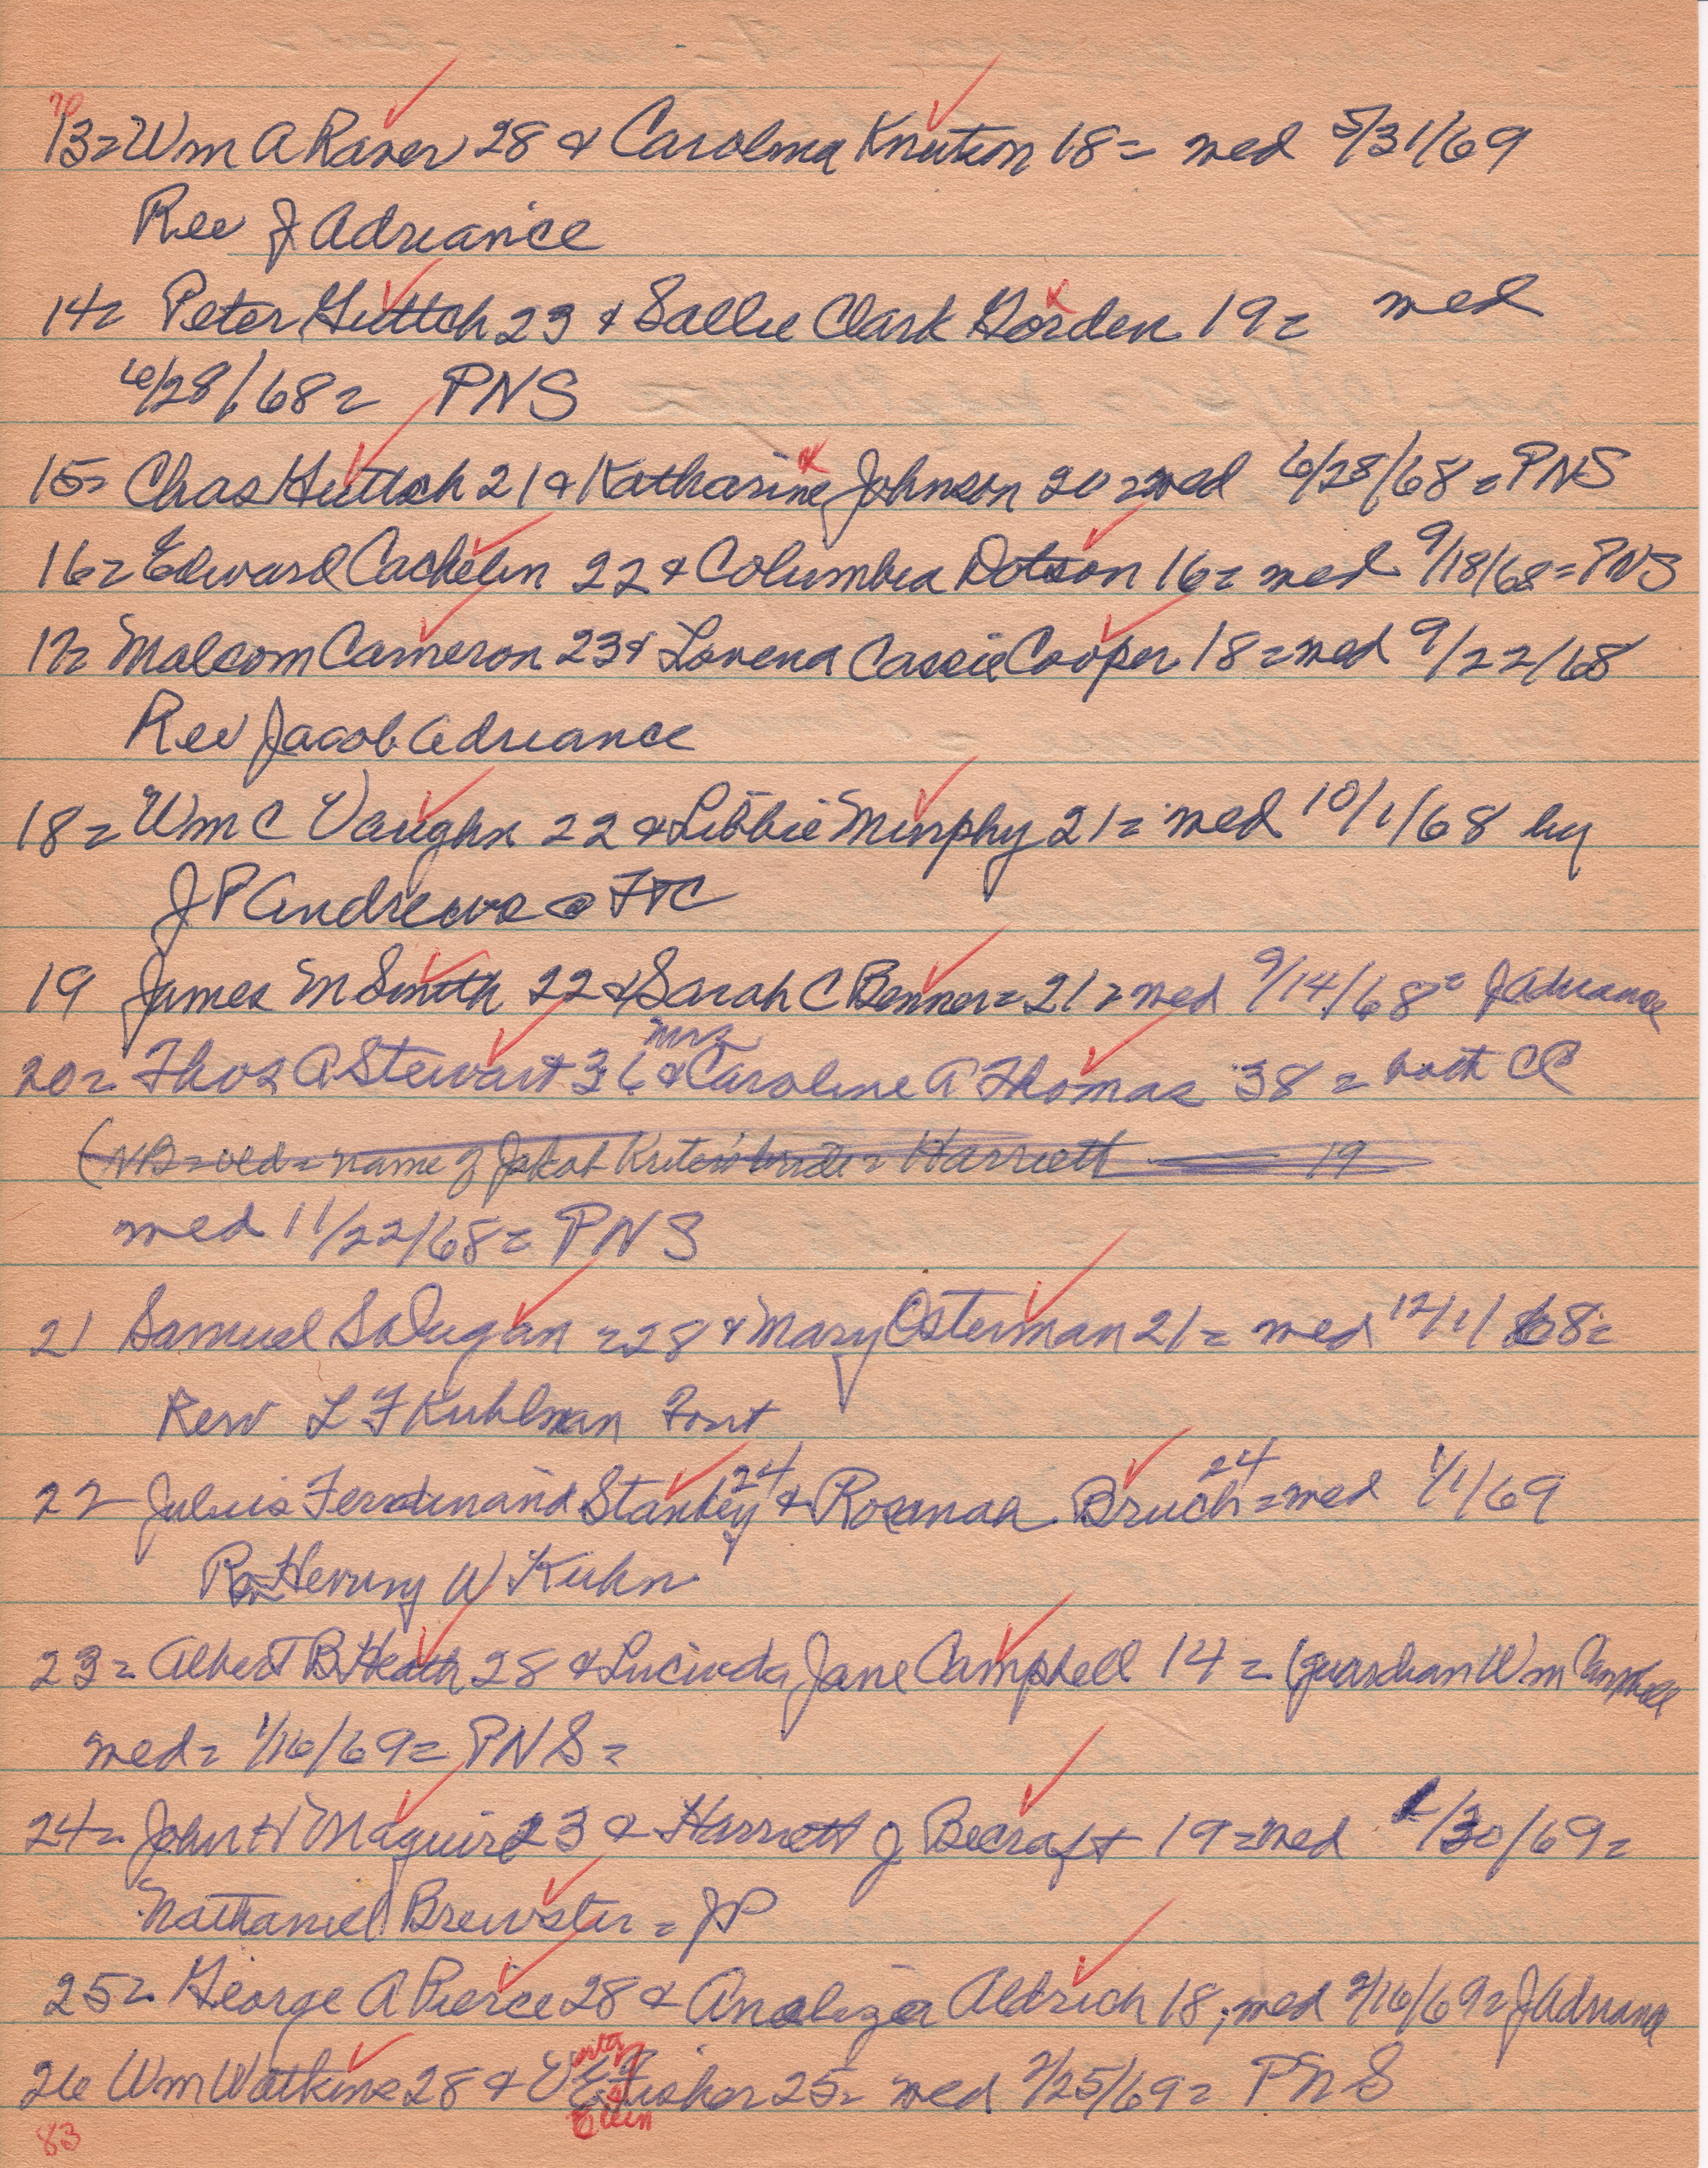 70
13= Wm A Raver 28 & Carolina Knutson 18= med 5/31/69
Rev J Adriance
14= Peter Guttch 23 & Sallie Clark Gorden 19= med
6/28/68= PNS
15= Chas Huttch 21 & Katharine Johnson 20= med 6/28/68= PNS
16= Edward Cachelin 22 & Columbia Dotson 16= med 9/18/68= PNS
17= Malcom Cameron 23 & Lovena Cassie Cooper 18= med 9/22/68
Rev Jacob Adriance
18= Wm C Vaughn 22 & Libbie Murphy 21= med 10/1/68 by
J P Andrews @ FTC
19 James M Smith 22 & Sarah C Benner= 21= med 9/14/68= J Adriance
20= Thos A Stewart 36 & mrs Caroline A Thomas 38= both CC
(NB= old= name of Jakob Kriters bride= Harriett 19
med 11/22/68= PNS
21 Samuel S Dugan =28 & Mary Osterman 21= med 12/1/68=
Rev L F Kuhlman Front
22 Julius Ferdinand Stanley 24 & Rosanah Bruch 24 =med 1/1/69
Rev Henry W Kuhn
23= Albert B Heath 28 & Lucinda Jane Campbell 14= (guardian Wm Campbell
med= 1/16/69= PNS=
24= John H Maguire 23 & Harriett J Becraft 19= med 1/30/69=
Nathaniel Brewster= JP
25= George A Pierce 28 & Analiza Aldrich 18; med 2/16/69= J Adriance
26 Wm Watkins 28 & E Fisher 25= med 2/25/69= PNS
Ellen
83